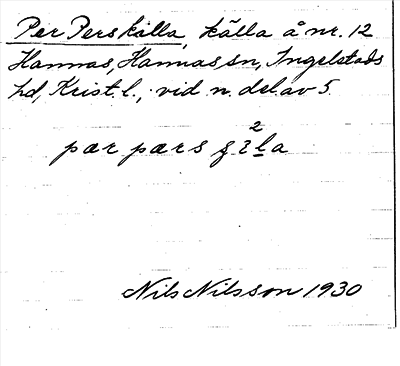 Per Perskälla, källa å nr. 12
Hannas, Hannas sn, Ingelstads
hd, Krist. l., vid n. del av 5.
pær pærs
Nils Nilsson 1930